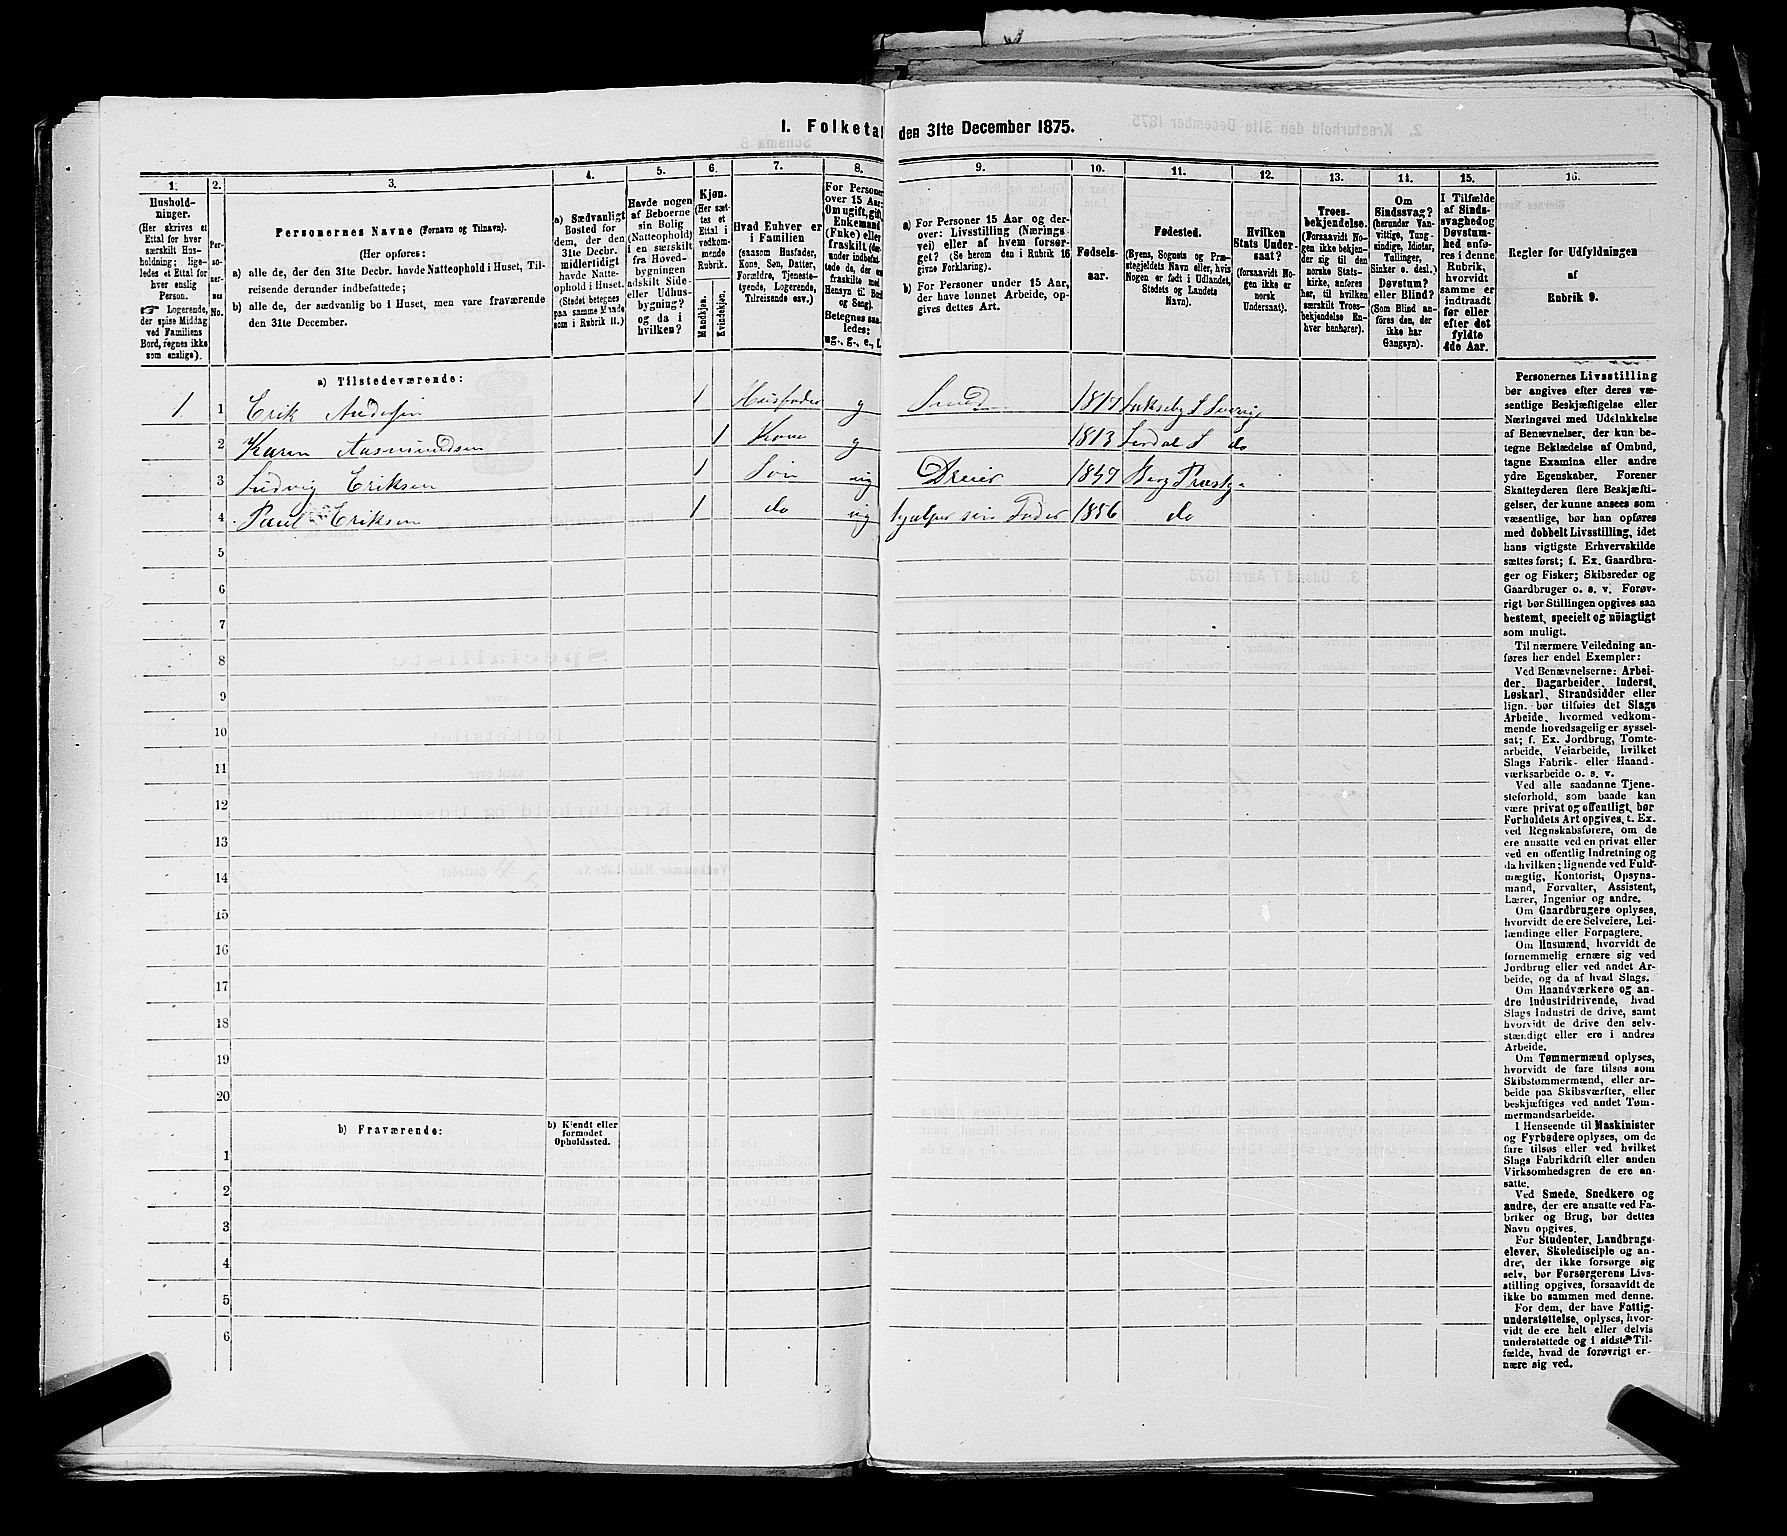 I. Folketal den 31te December 1875.
1.
2.
3.
4.
5.
6.
7.
8.
9.
10.
11.
12.
13.
14.
15.
16.
Hushold-
ninger.
(Her skrives et
Ettal for hver
særskilt Hus-
holdning; lige-
ledes et Ettal for
hver enslig
Person.
☞ Logerende,
der spise Middag
ved Familiens
Bord, regnes ikke
som enslige).
Per-
so-
ner-
nes
No.
Personernes Navne (Fornavn og Tilnavn).
(Her opføres:
a) alle de, der den 31te Decbr. havde Natteophold i Huset, Til-
reisende derunder indbefattede;
b) alle de, der sædvanlig bo i Huset, men vare fraværende
den 31te December.
a) Sædvanligt
Bosted for
dem, der den
31te Decbr.
midlertidigt
havde Natte-
ophold i Huset.
(Stedet betegnes
paa samme Maade
som i Rubrik 11.)
Havde nogen
af Beboerne
sin Bolig
(Natteophold)
i en særskilt
fra Hoved-
bygningen
adskilt Side-
eller Udhus-
bygning?
og da i
hvilken?
Kjøn.
(Her sæt-
tes et
Ettal i
vedkom-
mende
Rubrik.
Mandkjøn.
Kvindekjøn.
Hvad Enhver er
i Familien
(saasom Husfader,
Kone, Søn, Datter,
Forældre, Tjeneste-
tyende, Logerende,
Tilreisende osv.)
For Personer
over 15 Aar:
Om ugift, gift,
Enkemand
(Enke) eller
fraskilt (der-
under indbefat-
tede de, der ere
fraskilte med
Hensyn til Bord
og Seng).
Betegnes saa-
ledes:
ug., g., e., f.
a) For Personer 15 Aar og der-
over: Livsstilling (Nærings-
vei) eller af hvem forsør-
get? (Se herom den i Rubrik 16
givne Forklaring).
b) For Personer under 15 Aar,
der have lønnet Arbeide, op-
gives dettes Art.
Fødsels-
aar.
Fødested.
(Byens, Sognets og Præ-
stegjeldets Navn eller, hvis
Nogen er født i Udlandet,
Stedets og Landets
Navn).
Hvilken
Stats Under-
saat?
(forsaavidt No-
gen ikke er
norsk
Undersaat).
Troes-
bekjendelse.
(Forsaavidt No-
gen ikke bekjen-
der sig til den
norske Stats-
kirke, anføres
her, til hvilken
særskilt Troes-
bekjendelse En-
hver henhører).
Om
Sindssvag?
(herunder Van-
vittige, Tung-
sindige, Idioter,
Tullinger,
Sinker o. desl.)
Døvstum?
eller Blind?
(Som Blind an-
føres den, der
ikke har
Gangsyn).
I Tilfælde
af Sinds-
svaghed og
Døvstum-
hed anfø-
res i denne
Rubrik,
hvorvidt
samme er
indtraadt
før eller
efter det
fyldte
4de Aar.
Regler for Udfyldningen
af
Rubrik 9.
a) Tilstedeværende:
1 1 Erik Andersen 1 Husfader g Smed 1817 S Sverig
2 Karen Aasmundsen 1 Kone g 1813 S do
3 Ludvig Eriksen 1 Søn ug Dreier 1847 Berg Præstg
4 Paul Eriksen 1 do ug hjælper sin Fader 1856 do
5
6
7
8
9
10
11
12
13
14
15
16
17
18
19
20
b) Fraværende:
b) Kjendt eller
formodet
Opholdssted.
1
2
3
4
5
6
Personernes Livsstilling
bør angives efter deres væ-
sentlige Beskjæftigelse eller
Næringsvei med Udelukkelse
af Benævnelser, der kun be-
tegne Beklædelse af Ombud,
tagne Examina eller andre
ydre Egenskaber. Forener
Skatteyderen flere Beskjæfti-
gelser, der kunne ansees som
væsentlige, bør han opføres
med dobbelt Livsstilling, idet
hans vigtigste Erhvervskilde
sættes først; f. Ex. Gaardbru-
ger og Fisker; Skibsreder og
Gaardbruger o. s. v. Forøv-
rigt bør Stillingen opgives saa
bestemt, specielt og nöiagtigt
som muligt.
Til nærmere Veiledning an-
føres her endel Exempler:
Ved Benævnelserne: Arbei-
der, Dagarbeider, Inderst,
Løskarl, Strandsidder eller
lign. bør tilføies det Slags
Arbeide, hvormed vedkom-
mende hovedsagelig er syssel-
sat; f. Ex. Jordbrug, Tomte-
arbeide, Veiarbeide, hvilket
Slags Fabrik- eller Haand-
værksarbeide o. s. v.
Ved alle saadanne Tjene-
steforhold, som baade kan
være privat og offentligt, bør
Forholdets Art opgives, t. Ex.
ved Regnskabsførere, om de
ere ansatte ved en privat eller
ved en offentlig Indretning og
da hvilken; lignende ved Fuld-
mægtig, Kontorist, Opsyns-
mand, Forvalter, Assistent,
Lærer, Ingeniør og andre.
Om Gaardbrugere oplyses,
hvorvidt de ere Selveiere, Lei-
lændinge eller Forpagtere.
Om Husmænd, hvorvidt de
fornemmelig ernære sig ved
Jordbrug eller ved andet Ar-
beide, og da af hvad Slags.
Om Haandværkere og an-
dre Industridrivende, hvad
Slags Industri de drive, samt
hvorvidt de drive den selv-
stændigt eller ere i andres
Arbeide.
Om Tømmermænd oplyses,
hvorvidt de fare tilsøs som
Skibstømmermænd, eller ar-
beide paa Skibsværfter, eller
beskjæftiges ved andet Tøm-
mermandsarbeide.
I Henseende til Maskinister
og Fyrbødere oplyses, om de
fare tilsøs eller ved hvilket
Slags Fabrikdrift eller anden
Virksomhedsgren de ere an-
satte.
Ved Smede, Snedkere og
andre, der ere ansatte ved Fa-
briker og Brug, bør dettes
Navn opgives.
For Studenter, Landbrugs-
elever, Skoledisciple og an-
dre, der ikke forsørge sig
selv, bør Forsørgerens Livs-
stilling opgives, forsaavidt de
ikke bo sammen med denne.
For dem, der have Fattig-
understøttelse, oplyses, hvor-
vidt de ere helt eller delvis
understøttede og i sidste Til-
fælde, hvad de forøvrigt er-
nære sig ved.